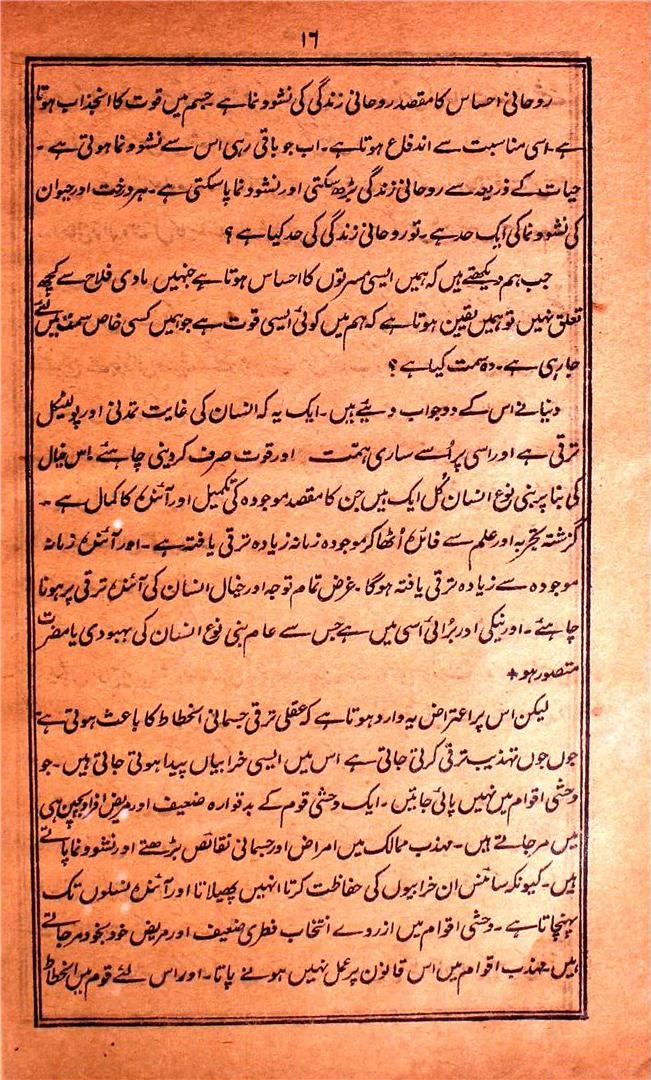 ۱۶
روحانی احساس کا مقصد روحانی زندگی کی نشوونما ہے جسم میں قوت کا انجذاب ہوتا
ہے۔ اسی مناسبت سے اندفاع ہوتا ہے۔ اب جو باقی رہی اس سے نشوونما ہوتی ہے۔
حیات کے ذریعہ سے روحانی زندگی بڑھ سکتی اور نشوونما پا سکتی ہے۔ ہر درخت اور حیوان
کی نشوونما کی ایک حد ہے۔ تو روحانی زندگی کی حد کیا ہے؟
جب ہم دیکھتے ہیں کہ ہمیں ایسی مسرتوں کا احساس ہوتا ہے جنہیں مادی فلاح سے کچھ
تعلق نہیں تو ہمیں یقین ہوتا ہے کہ ہم میں کوئی ایسی قوت ہے جو ہمیں کسی خاص سمت میں لئے
جا رہی ہے۔ وہ سمت کیا ہے؟
دنیا نے اس کے دو جواب دیئے ہیں۔ ایک یہ کہ انسان کی غایت تمدنی اور پولیٹیکل
ترقی ہے اور اسی پر اُسے ساری ہمت اور قوت صرف کر دینی چاہئے۔ اس خیال
کی بنا پر بنی نوع انسان کُل ایک ہیں جن کا مقصد موجودہ کی تکمیل اور آئندہ کا کمال ہے۔
گزشتہ تجربہ اور علم سے فائدہ اُٹھا کر موجودہ زمانہ زیادہ ترقی یافتہ ہے۔ اور آئندہ زمانہ
موجودہ سے زیادہ ترقی یافتہ ہوگا۔ غرض تمام توجہ اور خیال انسان کی آئندہ ترقی پر ہونا
چاہئے۔ اور نیکی اور برائی اسی میں ہے جس سے عام بنی نوع انسان کی بہبودی یا مضرت
متصور ہو +
لیکن اس پر اعتراض یہ وارد ہوتا ہے کہ عقلی ترقی جسمانی انحطاط کا باعث ہوتی ہے
جوں جوں تہذیب ترقی کرتی جاتی ہے اس میں ایسی خرابیاں پیدا ہوتی جاتی ہیں۔ جو
وحشی اقوام میں نہیں پائی جاتیں۔ ایک وحشی قوم کے بدقوارہ ضعیف اور مریض افراد بچپن ہی
میں مر جاتے ہیں۔ مہذب ممالک میں امراض اور جسمانی نقائص بڑھتے اور نشوونما پاتے
ہیں۔ کیونکہ سائنس ان خرابیوں کی حفاظت کرتا انہیں پھیلاتا اور آئندہ نسلوں تک
پہنچاتا ہے۔ وحشی اقوام میں ازروے انتخاب فطری ضعیف اور مریض خود بخود مر جاتے
ہیں۔ مہذب اقوام میں اس قانون پر عمل نہیں ہونے پاتا۔ اور اس لئے قوم میں انحطاط